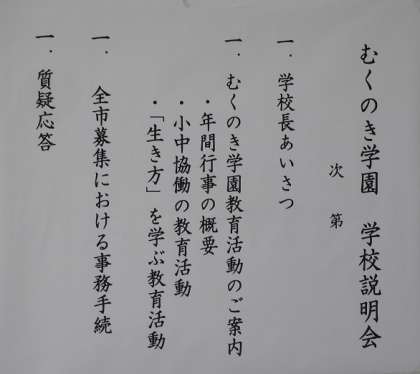 むくのき学園　学校説明会
次　第
一．学校長あいさつ
一．むくのき学園教育活動のご案内
・年間行事の概要
・小中協働の教育活動
・「生き方」を学ぶ教育活動
一．全市募集における事務手続
一．質疑応答